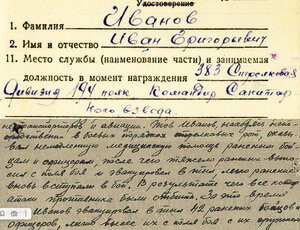 Удостоверение
1. Фамилия Иванов
2. Имя и отчество Иван Григорьевич
11. Место службы (наименование части) и занимаемая
должность в момент награждения 383 Стрелковая
Дивизия 194 полк Командир Санитар
ного взвода
и авиации. Тов Иванов, находясь непо
в боевых порядках стрелковых рот, оказы
вал немедленную медицинскую помощь раненым бой
цам и офицерам после чего тяжело раненых выно
сил с поля боя и эвакуировал в тыл, легко раненые
вновь вступали в бой. В результате чего все контр
атаки противника были отбиты. За это время
Иванов эвакуировал в тыл 42 раненых бойцов и
офицеров, лично вынес их с поля боя с их оружием